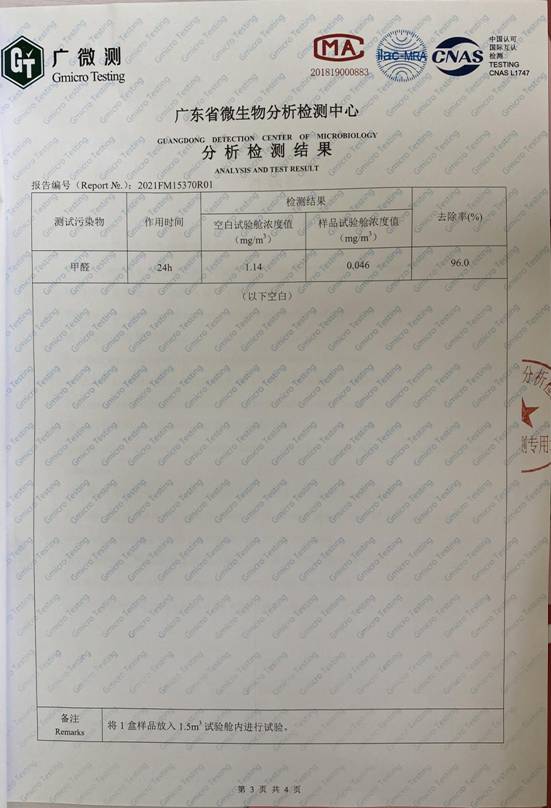 GT
广微测
Gmicro Testing
MA
201819000883
ilac-MRA
CNAS
中国认可
国际互认
检测
TESTING
CNAS L1747
广东省微生物分析检测中心
GUANGDONG DETECTION CENTER OF MICROBIOLOGY
分析检测结果
ANALYSIS AND TEST RESULT
报告编号（Report №.）：2021FM15370R01
测试污染物 作用时间 检测结果 去除率(%)
空白试验舱浓度值 样品试验舱浓度值
（mg/m³） （mg/m³）
甲醛 24h 1.14 0.046 96.0
（以下空白）
分析
专用
备注 将 1 盒样品放入 1.5m³ 试验舱内进行试验。
Remarks
第 3 页 共 4 页